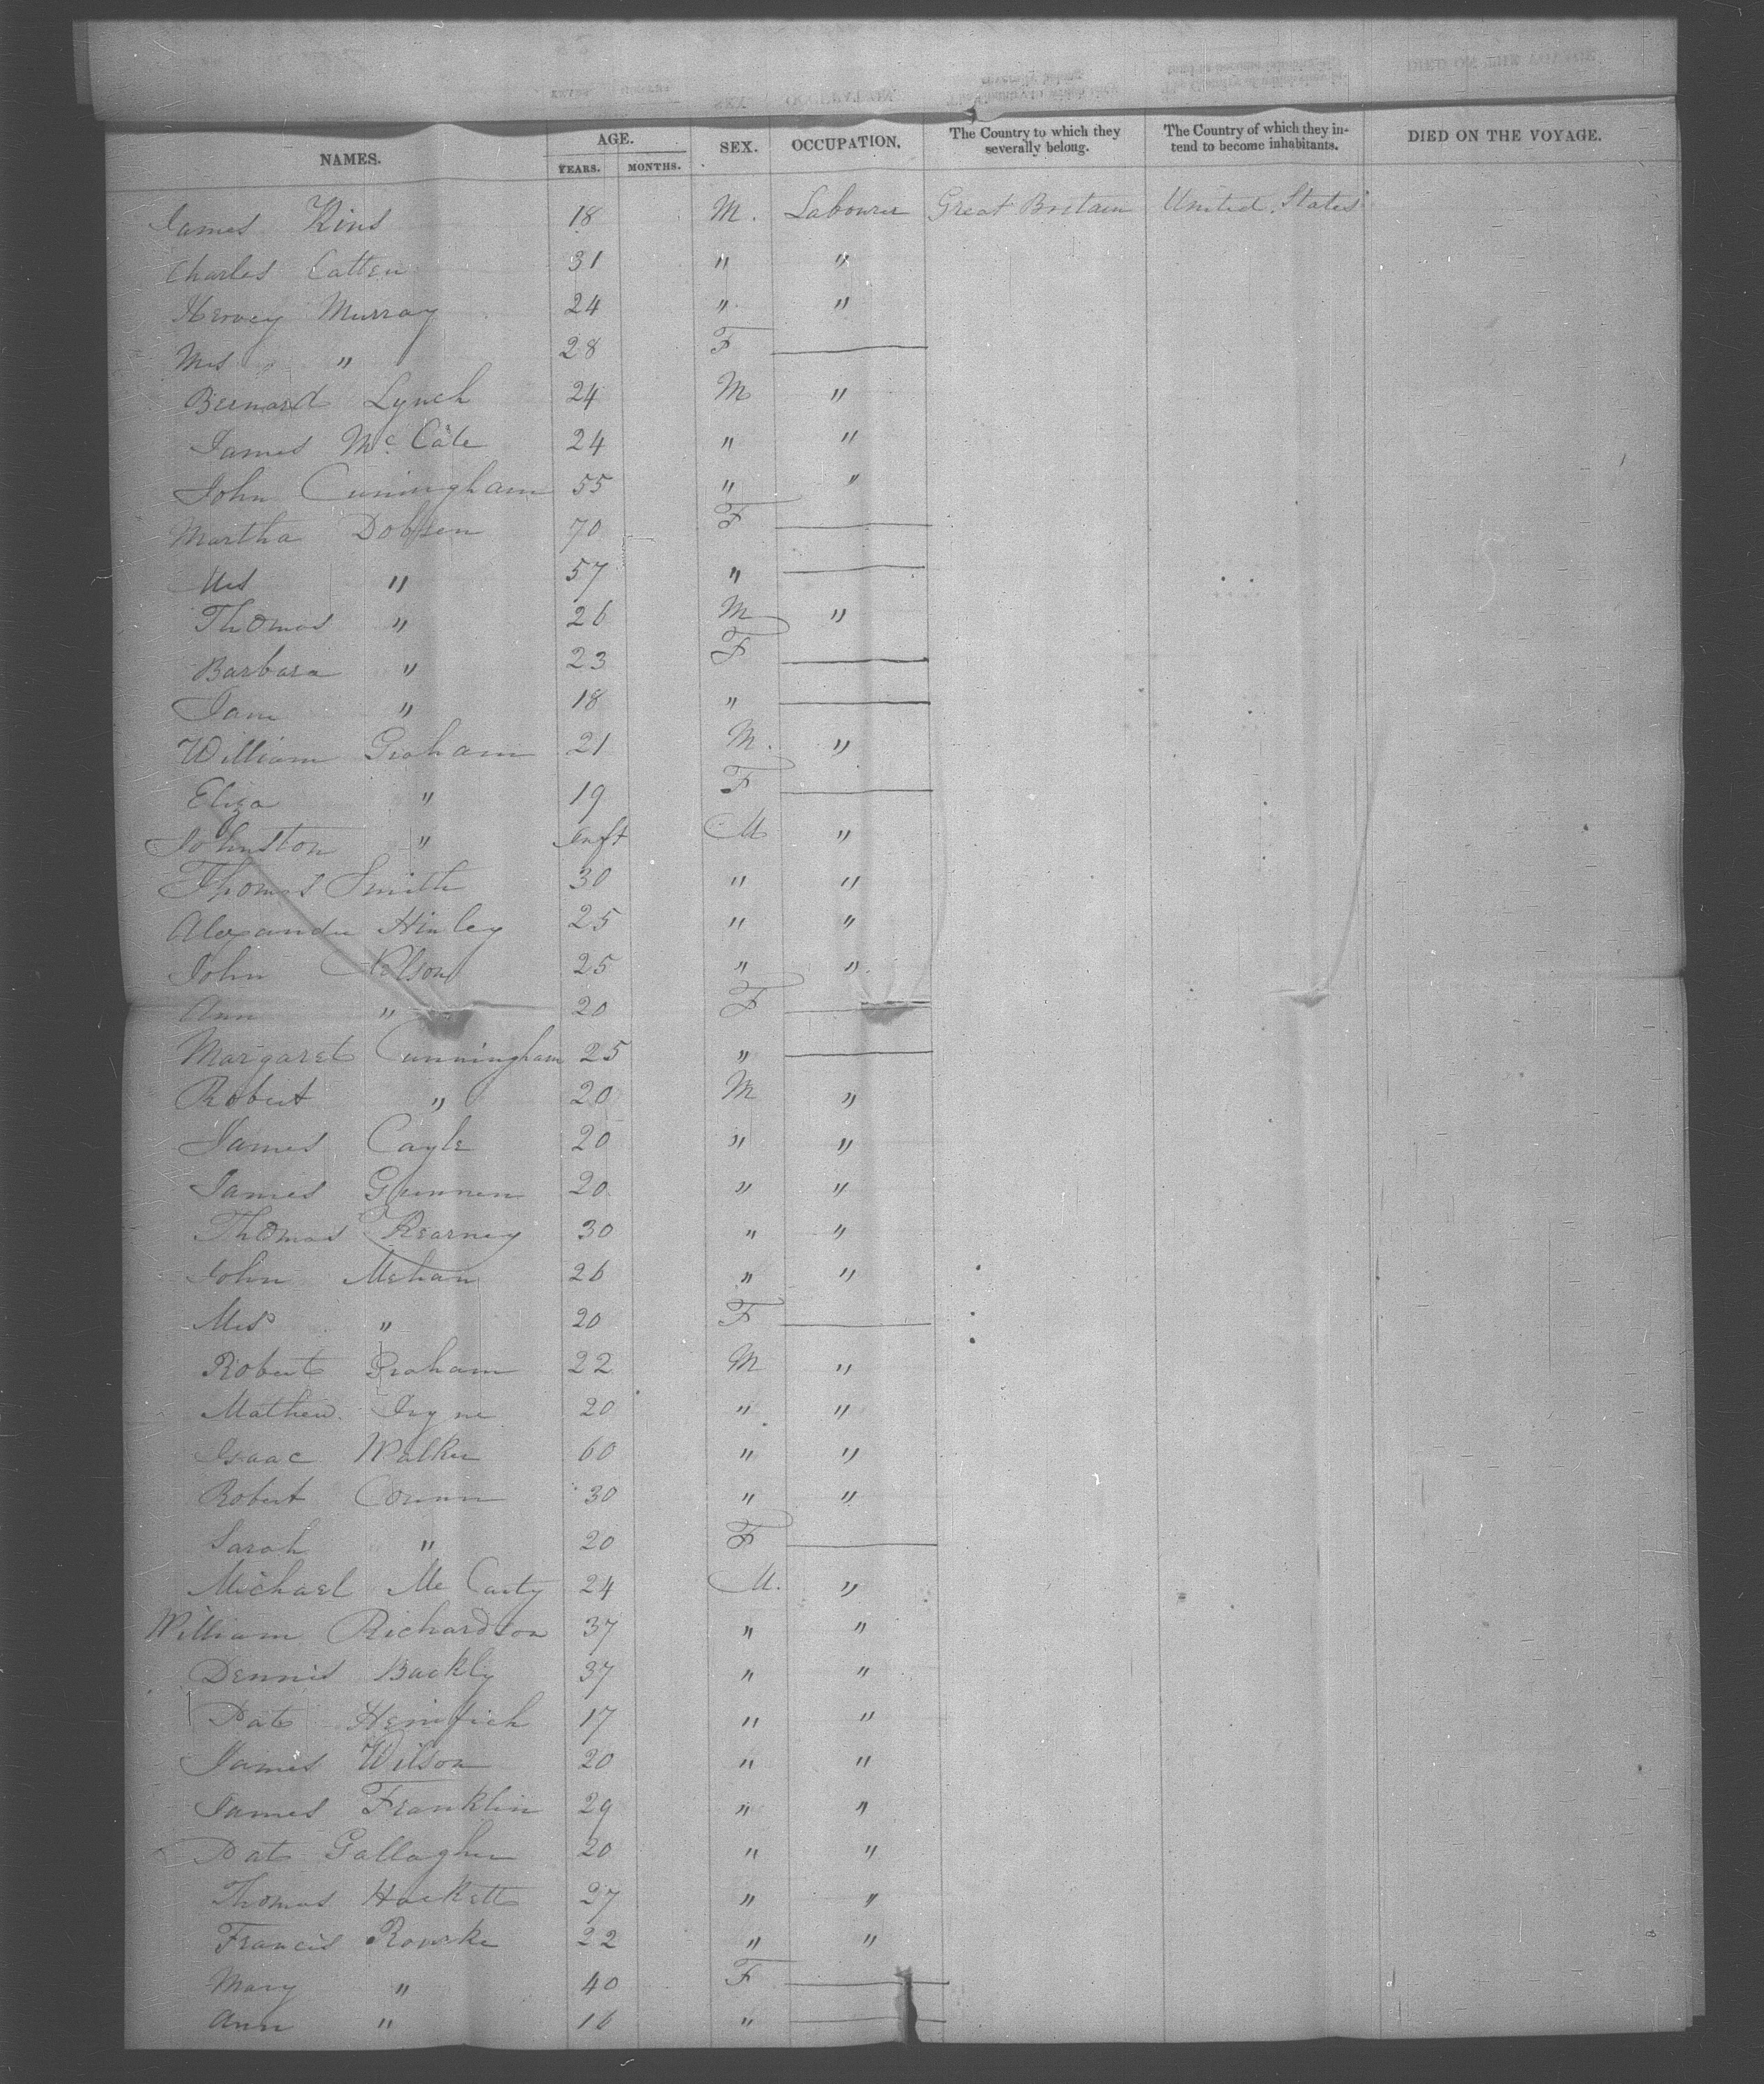 NAMES. AGE. YEARS. MONTHS. SEX. OCCUPATION. The Country to which they severally belong. The Country of which they intend to become inhabitants. DIED ON THE VOYAGE.
James Kins 18 M. Labourer Great Britain United States
Charles Catten 31 " "
Hervey Murray 24 " "
Mrs " 28 F
Bernard Lynch 24 M "
James Mc Cale 24 " "
John Cuningham 55 " "
Martha Dobsen 70 F
Mrs " 57 "
Thomas " 26 M "
Barbara " 23 F
Jane " 18 "
William Graham 21 M. "
Eliza " 19 F
Johnston " Inft M "
Thomas Smith 30 " "
Alexander Hinley 25 " "
John Nelson 25 " "
Ann " 20 F
Margaret Cunningham 25 "
Robert " 20 M "
James Cayle 20 " "
James 20 " "
Thomas Kearney 30 " "
John Mehan 26 " "
Mrs " 20 F
Robert Graham 22 M "
Mathew 20 " "
Isaac Walker 60 " "
Robert 30 " "
Sarah " 20 F
Michael Mc Carty 24 M. "
William Richardson 37 " "
Dennis Buckly 37 " "
Pat 17 " "
James Wilson 20 " "
James Franklin 29 " "
Pat Gallagher 20 " "
Thomas Hackett 27 " "
Francis Rourke 22 " "
Mary " 40 F
Ann " 16 "